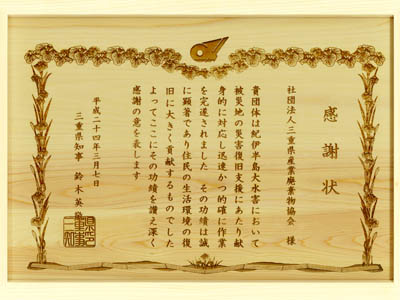 感謝状
社団法人三重県産業廃棄物協会 様
貴団体は紀伊半島大水害において
被災地の災害復旧支援にあたり献
身的に対応し迅速かつ的確に作業
を完遂されました その功績は誠
に顕著であり住民の生活環境の復
旧に大きく貢献するものでした
よってここにその功績を讃え深く
感謝の意を表します
平成二十四年三月七日
三重県知事 鈴木英敬